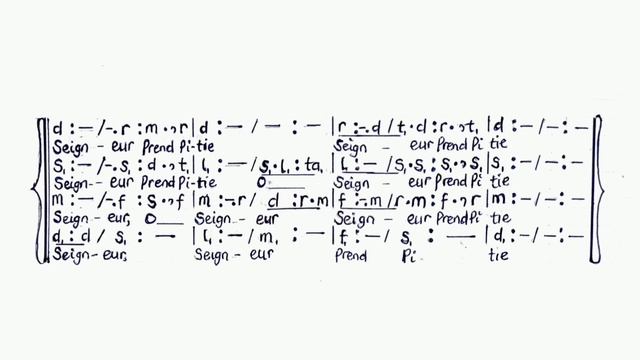 d :– /–.r :m .,r | d :– / – :– | r :–.d / t₁.d :r .,t₁ | d :– /– :–
Seign - eur Prend Pi-tie Seign - eur Prend Pi tie
s₁ :– /–.s₁ :d .,t₁ | l₁ :– /s₁.l₁ :ta₁ | l₁ :– /s₁.s₁ :s₁.,s₁ | s₁ :– /– :–
Seign-eur Prend Pi-tie O___ Seign - eur Prend Pi tie
m :– /–.f :s .,f | m :–.r / d :r.m | f :–.m /r.m :f .,r | m :– /– :–
Seign-eur, O___ Seign - eur Seign - eur Prend Pi tie
d₁ :d / s₁ : — | l₁ :– / m₁ :– | f₁ :– / s₁ : — | d₁ :– /– :–
Seign-eur, Seign - eur Prend Pi- tie